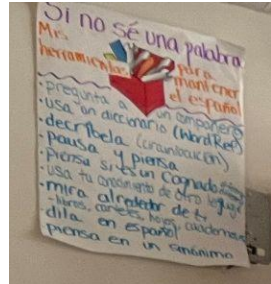 Si no sé una palabra
Mr.
herramientas para
mantener
el español
• pregunta a un compañero
• usa un diccionario (WordRef)
• decríbela (circunlocución)
• pausa y piensa
• piensa si es un cognado
• usa tu conocimiento de otro lenguaje
• mira alrededor de ti
- libros, carteles, hojas, cuadernos
• dila en español
piensa en un sinónimo